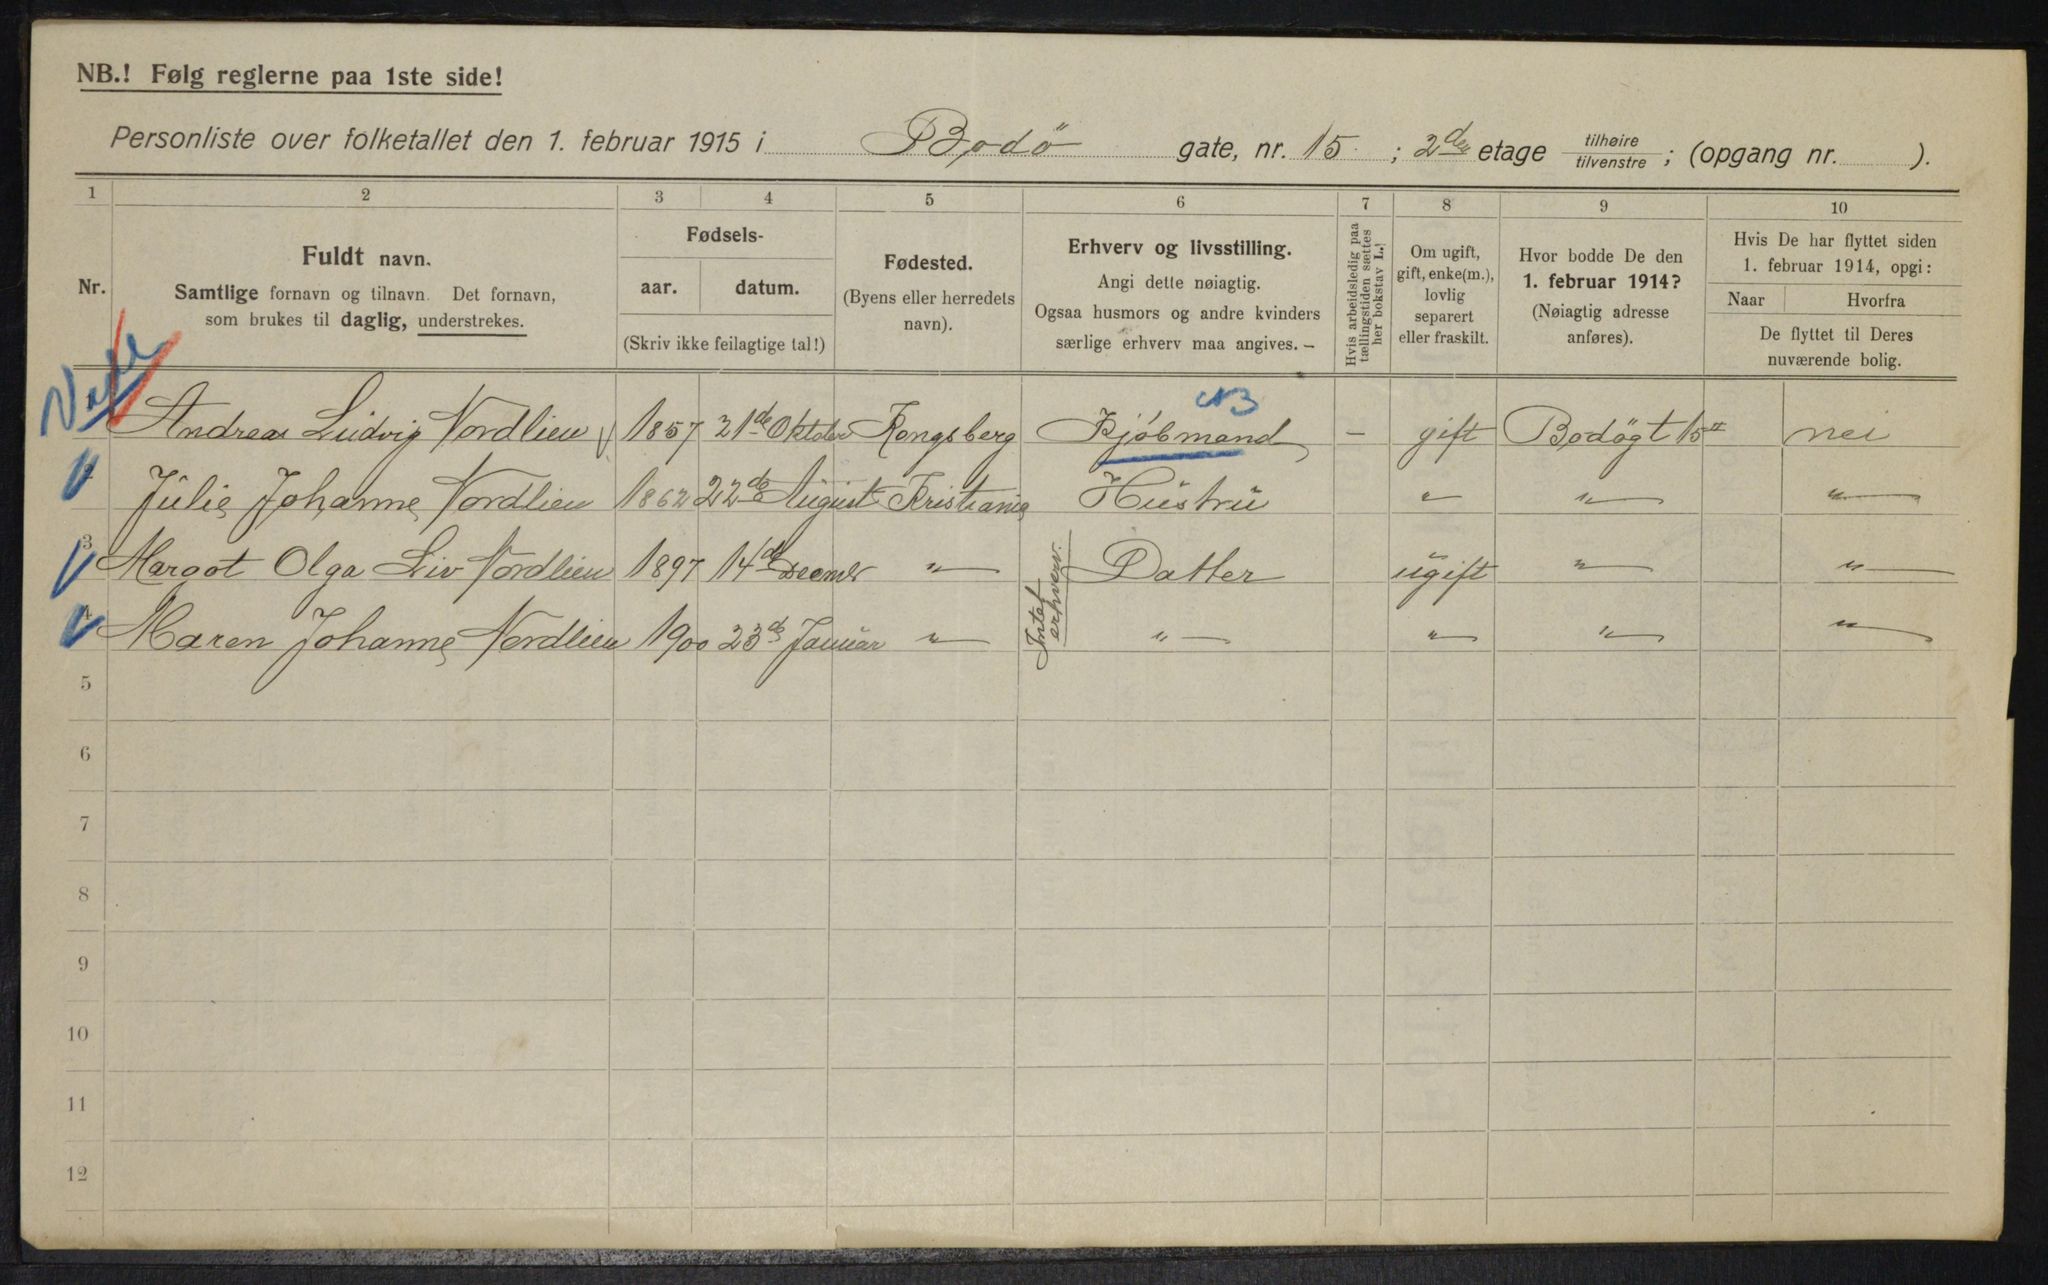 NB.! Følg reglerne paa 1ste side!
Personliste over folketallet den 1. februar 1915 i Bodø gate, nr. 15 ; 2den etage tilhøire tilvenstre ; (opgang nr. ).
1 2 3 4 5 6 7 8 9 10
Nr.
Fuldt navn.
Samtlige fornavn og tilnavn. Det fornavn,
som brukes til daglig, understrekes.
Fødsels-
aar. datum.
(Skriv ikke feilagtige tal!)
Fødested.
(Byens eller herredets
navn).
Erhverv og livsstilling.
Angi dette nøiagtig.
Ogsaa husmors og andre kvinders
særlige erhverv maa angives. —
Hvis arbeidsledig paa
tællingstiden sættes
her bokstav L.!
Om ugift,
gift, enke(m.),
lovlig
separert
eller fraskilt.
Hvor bodde De den
1. februar 1914?
(Nøiagtig adresse
anføres).
Hvis De har flyttet siden
1. februar 1914, opgi:
Naar Hvorfra
De flyttet til Deres
nuværende bolig.
Andreas Ludvig Nordlien 1857 21de Oktober Kongsberg Kjøbmand — gift Bodøgt 15II nei
2 Julie Johanne Nordlien 1862 22de August Kristiania Hustru " " "
3 Margot Olga Liv Nordlien 1897 14de Decmbr " Datter ugift " "
Intet erhverv.
4 Maren Johanne Nordlien 1900 23de Januar " " " " "
5
6
7
8
9
10
11
12